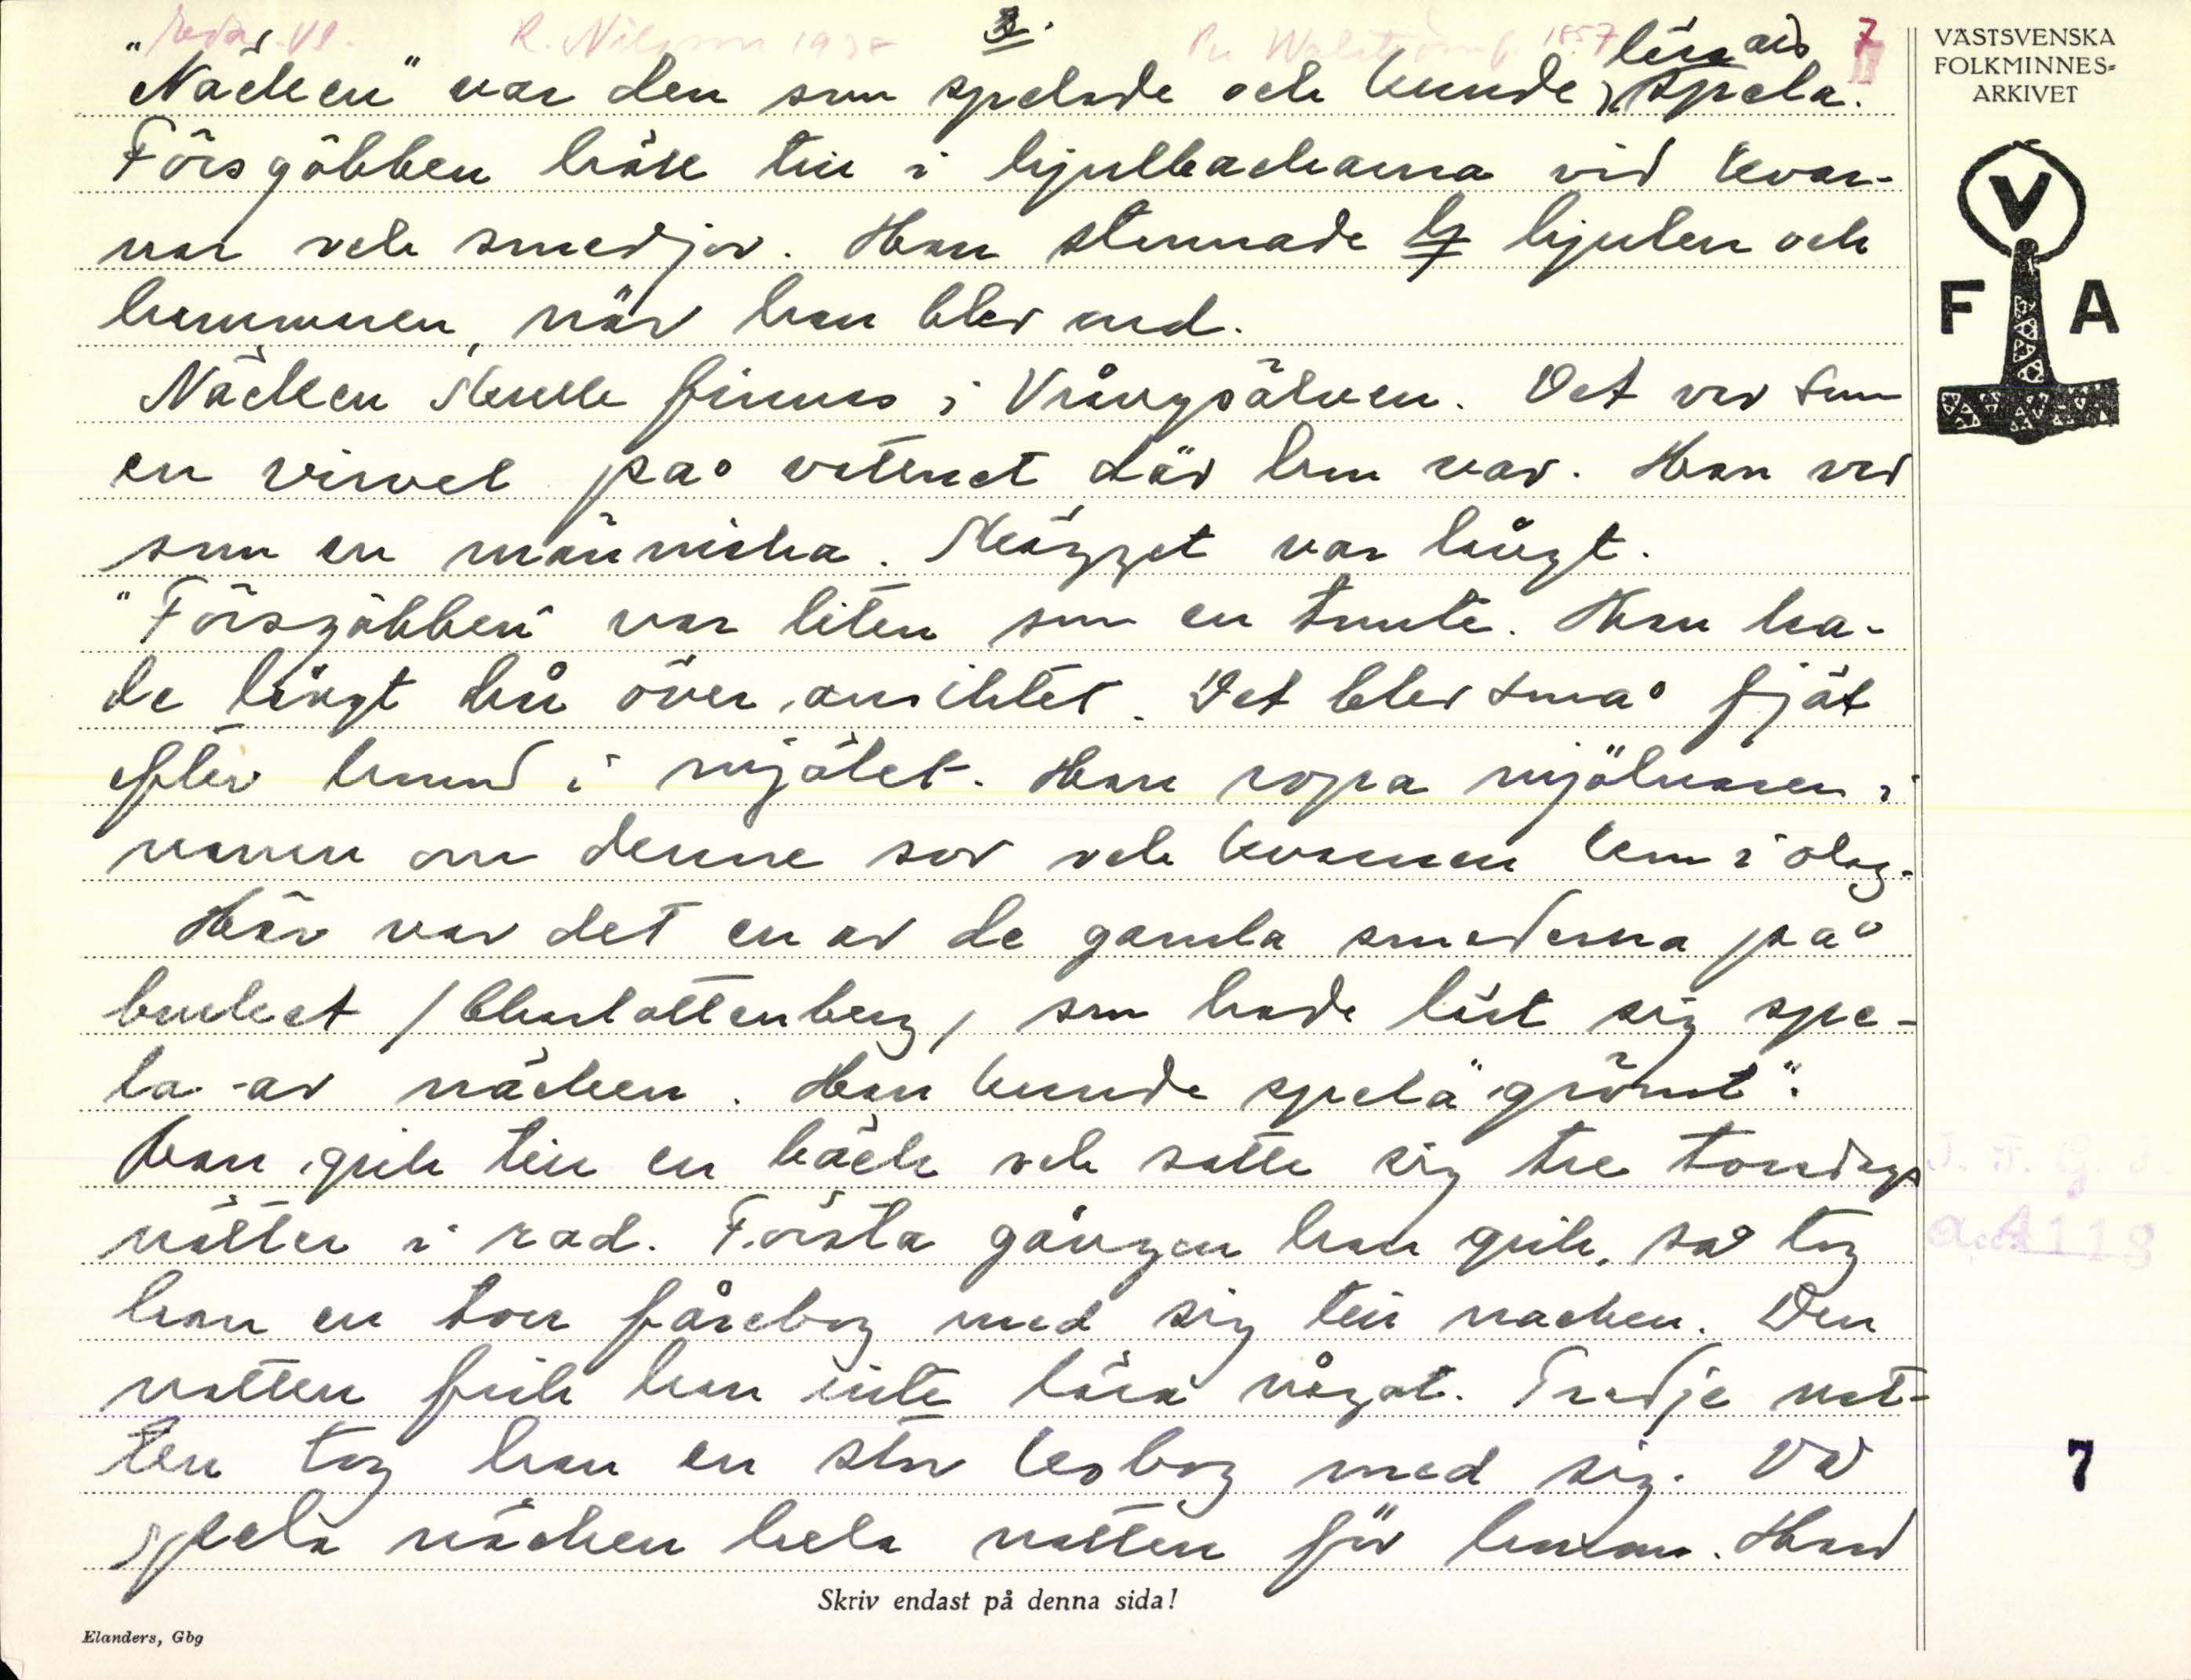 Eda Vl. R. Nilsson 1938 3. 1857 7
lära sig
"Näcken" var den som spelade och kunde spela.
Försgôbben höse till i hjulbackarna vid kvar-
nar och smedjor. Han stannade hjulen och
hammaren, när han blev ond.
Näcken skulle finnas i Vrångsälven. Det var som
en virvel på vattnet där han var. Han var
som en människa. Skägget var långt.
"Försgôbben" var liten som en tomte. Han ha-
de långt hår över ansiktet. Det blev små fjät
efter honom i mjölet. Han ropa mjölnaren i
namn om denne sov och kvarnen kom i olag.
Här var det en av de gamla smederna på
bruket /Charlottenberg/ som hade lärt sig spe-
la av näcken. Han kunde spela "grömt".
Han gick till en bäck och satte sig tre torsdags
nätter i rad. Första gången han gick, så tog
han en torr fårebog med sig till näcken. Den
natten fick han inte lära något. Tredje nat-
ten tog han en stor kobog med sig. Då
spela näcken hela natten för honom. Han
Skriv endast på denna sida!
Elanders, Gbg
VÄSTSVENSKA
FOLKMINNES-
ARKIVET
V
F A
7